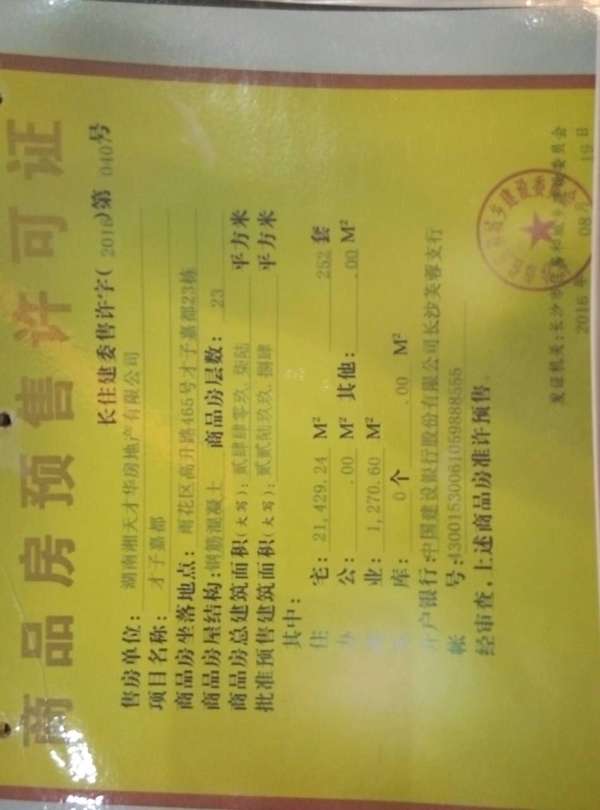 商品房预售许可证
长住建委售许字(2016)第 040号
售房单位: 湖南湘天才华房地产有限公司
项目名称: 才子嘉都
商品房坐落地点: 雨花区高升路465号才子嘉都23栋
商品房屋结构: 钢筋混凝土 商品房层数: 23
商品房总建筑面积(大写): 贰肆肆零玖.柒陆 平方米
批准预售建筑面积(大写): 贰贰陆玖玖.捌肆 平方米
其中:
住 宅: 21,429.24 M² 252 套
办 公: .00 M² 其他: .00 M²
业: 1,270.60 M²
库: 0 个 .00 M²
户银行: 中国建设银行股份有限公司长沙芙蓉支行
帐 号: 43001530061059888555
经审查,上述商品房准许预售。
发证机关: 长沙市住房和城乡建设委员会
2016 年 08 月 19 日